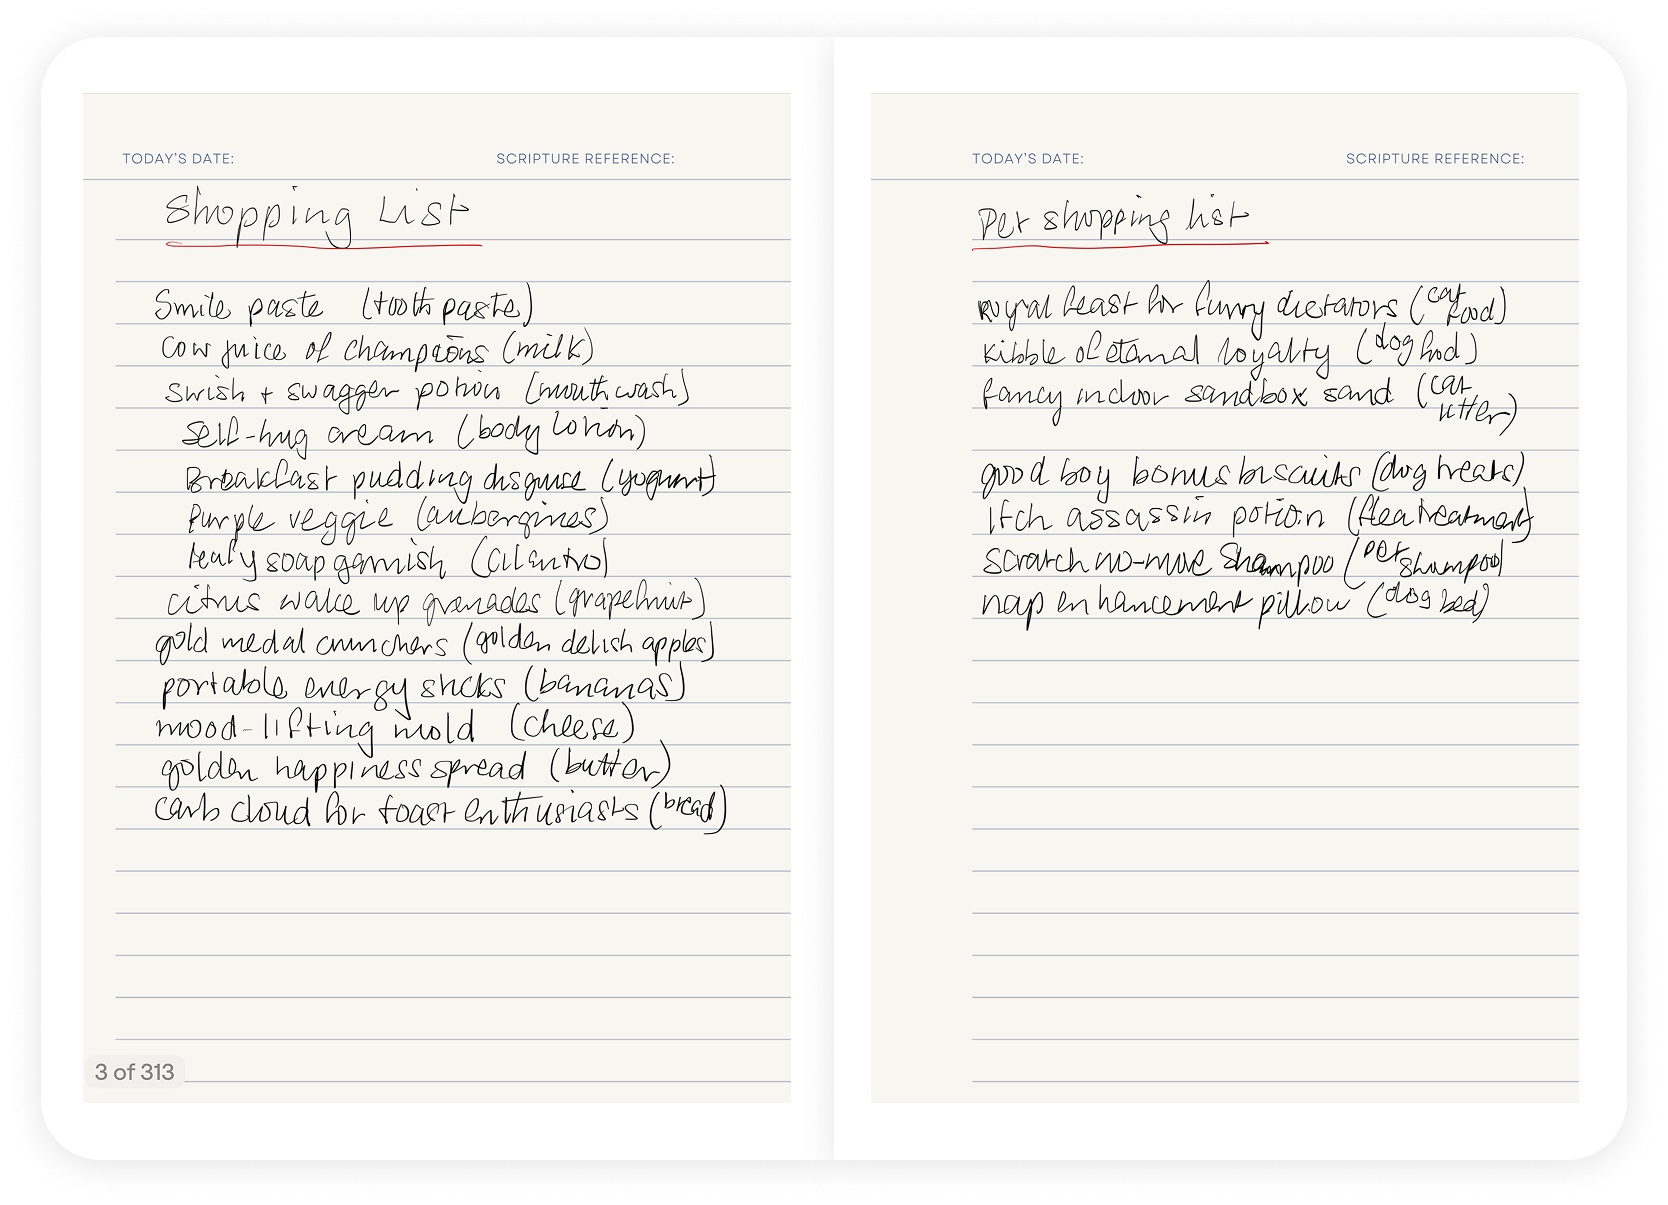 TODAY'S DATE: SCRIPTURE REFERENCE:
Shopping List
Smile paste (toothpaste)
Cow juice of champions (milk)
swish + swagger potion (mouthwash)
Self-hug cream (body lotion)
Breakfast pudding disguise (yogurt)
Purple veggie (aubergines)
leafy soap garnish (cilantro)
citrus wake up grenades (grapefruit)
gold medal crunchers (golden delish apples)
portable energy sticks (bananas)
mood-lifting mold (cheese)
golden happiness spread (butter)
carb cloud for toast enthusiasts (bread)
3 of 313
TODAY'S DATE: SCRIPTURE REFERENCE:
Pet shopping list
royal feast for furry dictators (cat food)
kibble of eternal loyalty (dog food)
fancy indoor sandbox sand (cat litter)
good boy bonus biscuits (dog treats)
Itch assassin potion (flea treatment)
scratch no-more shampoo (pet shampoo)
nap enhancement pillow (dog bed)